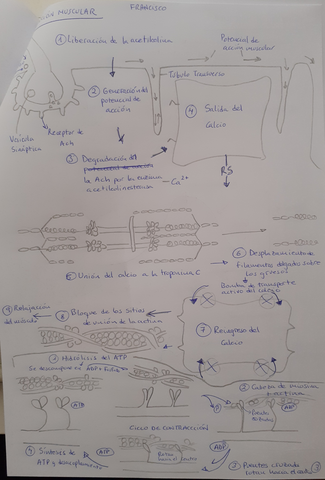 MUSCULAR
FRANCISCO
① Liberación de la acetilcolina
Potencial de
acción muscular
Túbulo Transverso
② Generación del
potencial de
acción
④ Salida del
Calcio
Receptor de
Ach
Vesícula
Sináptica
③ Degradación del
la Ach por la enzima
acetilcolinesterasa
Ca²⁺
RS
⑤ Unión del calcio a la troponina C
⑥ Deslizamiento de
filamentos delgados sobre
los gruesos
Bomba de transporte
activo del calcio
⑨ Relajación
del músculo
⑧ Bloqueo de los sitios
de unión de la actina
⑦ Recaptura del
Calcio
① Hidrólisis del ATP
Se descompone en ADP + Fosfato
ATP
ADP
CICLO DE CONTRACCIÓN
④ Síntesis de
ATP y
ATP
ADP
③ Puentes cruzados
rotan hacia el centro